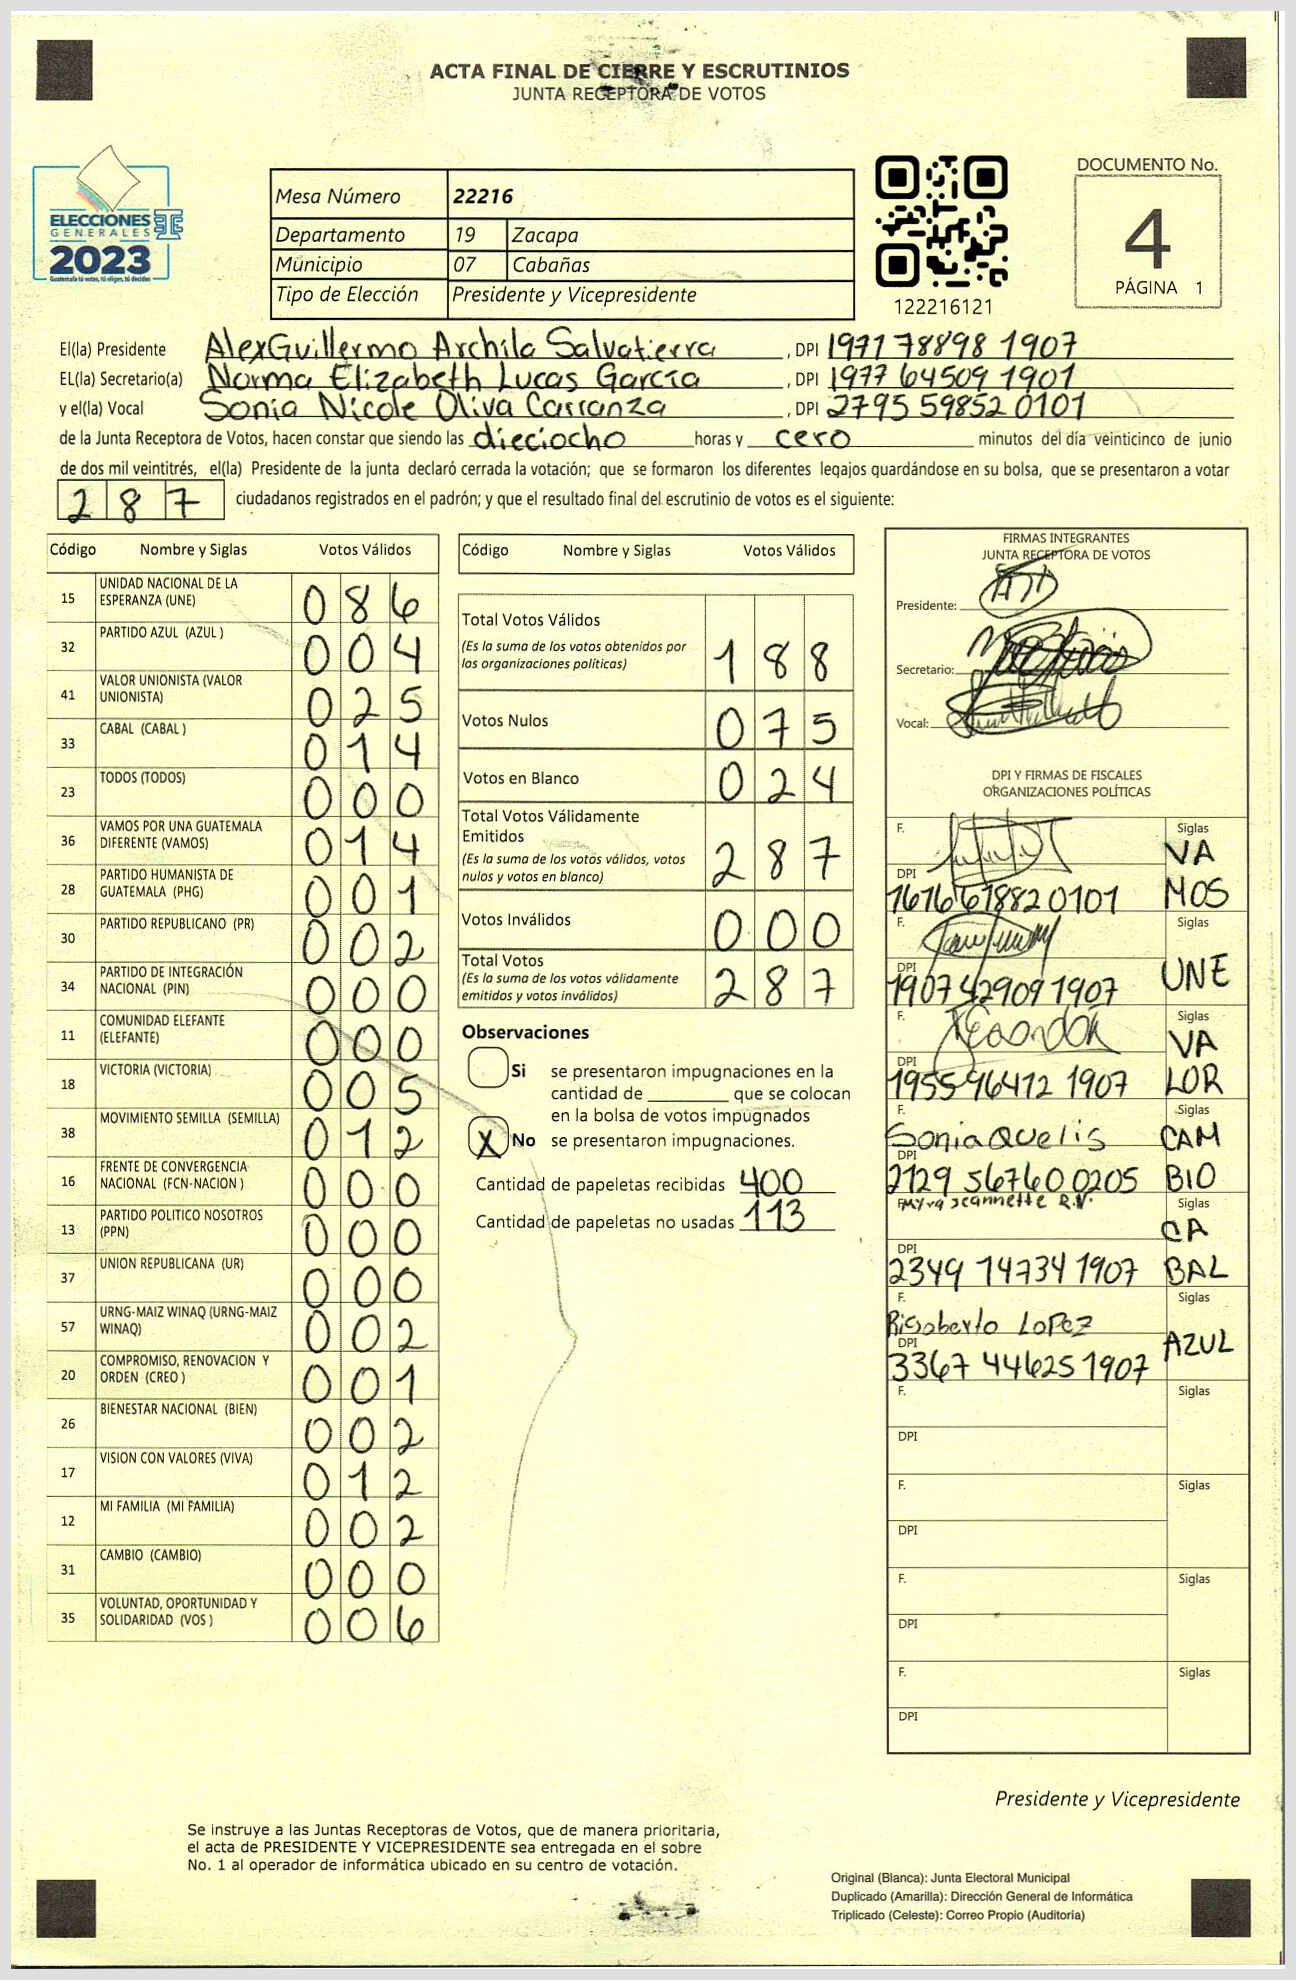 ACTA FINAL DE CIERRE Y ESCRUTINIOS
JUNTA RECEPTORA DE VOTOS
ELECCIONES
GENERALES
2023
Guatemala tú votas, tú eliges, tú decides
Mesa Número 22216
Departamento 19 Zacapa
Municipio 07 Cabañas
Tipo de Elección Presidente y Vicepresidente
122216121
DOCUMENTO No.
4
PÁGINA 1
El(la) Presidente AlexGuillermo Archila Salvatierra, DPI 1971 78898 1907
EL(la) Secretario(a) Norma Elizabeth Lucas García, DPI 1977 64509 1901
y el(la) Vocal Sonia Nicole Oliva Carranza, DPI 2795 59852 0101
de la Junta Receptora de Votos, hacen constar que siendo las dieciocho horas y cero minutos del día veinticinco de junio
de dos mil veintitrés, el(la) Presidente de la junta declaró cerrada la votación; que se formaron los diferentes legajos guardándose en su bolsa, que se presentaron a votar
287 ciudadanos registrados en el padrón; y que el resultado final del escrutinio de votos es el siguiente:
Código Nombre y Siglas Votos Válidos
15 UNIDAD NACIONAL DE LA ESPERANZA (UNE) 086
32 PARTIDO AZUL (AZUL ) 004
41 VALOR UNIONISTA (VALOR UNIONISTA) 025
33 CABAL (CABAL ) 014
23 TODOS (TODOS) 000
36 VAMOS POR UNA GUATEMALA DIFERENTE (VAMOS) 014
28 PARTIDO HUMANISTA DE GUATEMALA (PHG) 001
30 PARTIDO REPUBLICANO (PR) 002
34 PARTIDO DE INTEGRACIÓN NACIONAL (PIN) 000
11 COMUNIDAD ELEFANTE (ELEFANTE) 000
18 VICTORIA (VICTORIA) 005
38 MOVIMIENTO SEMILLA (SEMILLA) 012
16 FRENTE DE CONVERGENCIA NACIONAL (FCN-NACION ) 000
13 PARTIDO POLITICO NOSOTROS (PPN) 000
37 UNION REPUBLICANA (UR) 000
57 URNG-MAIZ WINAQ (URNG-MAIZ WINAQ) 002
20 COMPROMISO, RENOVACION Y ORDEN (CREO ) 001
26 BIENESTAR NACIONAL (BIEN) 002
17 VISION CON VALORES (VIVA) 012
12 MI FAMILIA (MI FAMILIA) 002
31 CAMBIO (CAMBIO) 000
35 VOLUNTAD, OPORTUNIDAD Y SOLIDARIDAD (VOS ) 006
Código Nombre y Siglas Votos Válidos
Total Votos Válidos 188
(Es la suma de los votos obtenidos por las organizaciones políticas)
Votos Nulos 075
Votos en Blanco 024
Total Votos Válidamente Emitidos 287
(Es la suma de los votos válidos, votos nulos y votos en blanco)
Votos Inválidos 000
Total Votos 287
(Es la suma de los votos válidamente emitidos y votos inválidos)
Observaciones
Si se presentaron impugnaciones en la
cantidad de ________ que se colocan
en la bolsa de votos impugnados
X No se presentaron impugnaciones.
Cantidad de papeletas recibidas 400
Cantidad de papeletas no usadas 113
FIRMAS INTEGRANTES
JUNTA RECEPTORA DE VOTOS
Presidente:
Secretario:
Vocal:
DPI Y FIRMAS DE FISCALES
ORGANIZACIONES POLÍTICAS
F. Siglas VA MOS
DPI 1616 61882 0101
F. Siglas UNE
DPI 1907 42909 1907
F. Siglas VA LOR
DPI 1955 96412 1907
F. Sonia Quelis Siglas CAM BIO
DPI 2129 56760 0205
F. Jeannette R.V. Siglas CA BAL
DPI 2349 14734 1907
F. Rigoberto LoPez Siglas AZUL
DPI 3367 44625 1907
F. Siglas
DPI
F. Siglas
DPI
F. Siglas
DPI
F. Siglas
DPI
Presidente y Vicepresidente
Se instruye a las Juntas Receptoras de Votos, que de manera prioritaria,
el acta de PRESIDENTE Y VICEPRESIDENTE sea entregada en el sobre
No. 1 al operador de informática ubicado en su centro de votación.
Original (Blanca): Junta Electoral Municipal
Duplicado (Amarilla): Dirección General de Informática
Triplicado (Celeste): Correo Propio (Auditoría)